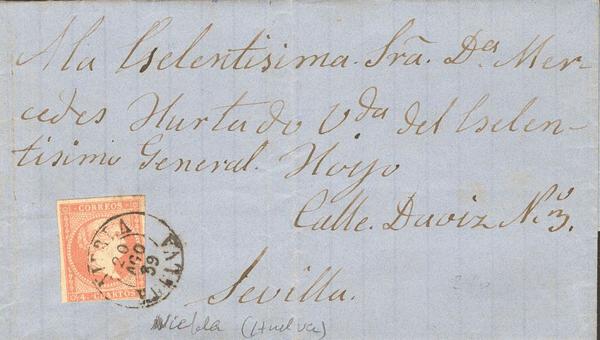 A la Eselentisima. Sra̅. Dª Mer-
cedes Hurtado Vda del Eselen-
tisimo General. Hoyo
Calle. Daoiz N.º 3.
Sevilla.
CORREOS
20
AGO
59
4 Cs CORREOS
Niebla (Huelva)